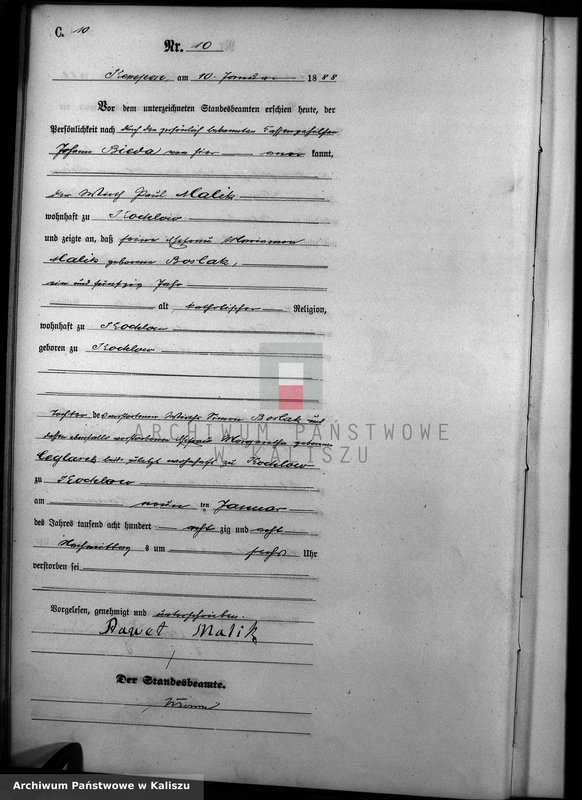 C. 10
Nr. 10
am 10. Januar 1888
Vor dem unterzeichneten Standesbeamten erschien heute, der
Persönlichkeit nach durch den persönlich bekannten
Johann Bieda von hier kannt,
der Wirth Paul Malik
wohnhaft zu Kochlow
und zeigte an, daß seine Ehefrau Marianna
Malik geborene Boslak,
ein und fünfzig Jahr
alt, katholischer Religion,
wohnhaft zu Kochlow
geboren zu Kochlow
Tochter des verstorbenen Wirths Simon Boslak und
dessen ebenfalls verstorbenen Ehefrau Margaretha geborene
Ceglarek beide zuletzt wohnhaft zu Kochlow
zu Kochlow
am neun ten Januar
des Jahres tausend acht hundert acht zig und acht
Nachmittag s um sechs Uhr
verstorben sei
Vorgelesen, genehmigt und unterschrieben.
Paweł Malik
Der Standesbeamte.
ARCHIWUM PAŃSTWOWE
W KALISZU
Archiwum Państwowe w Kaliszu